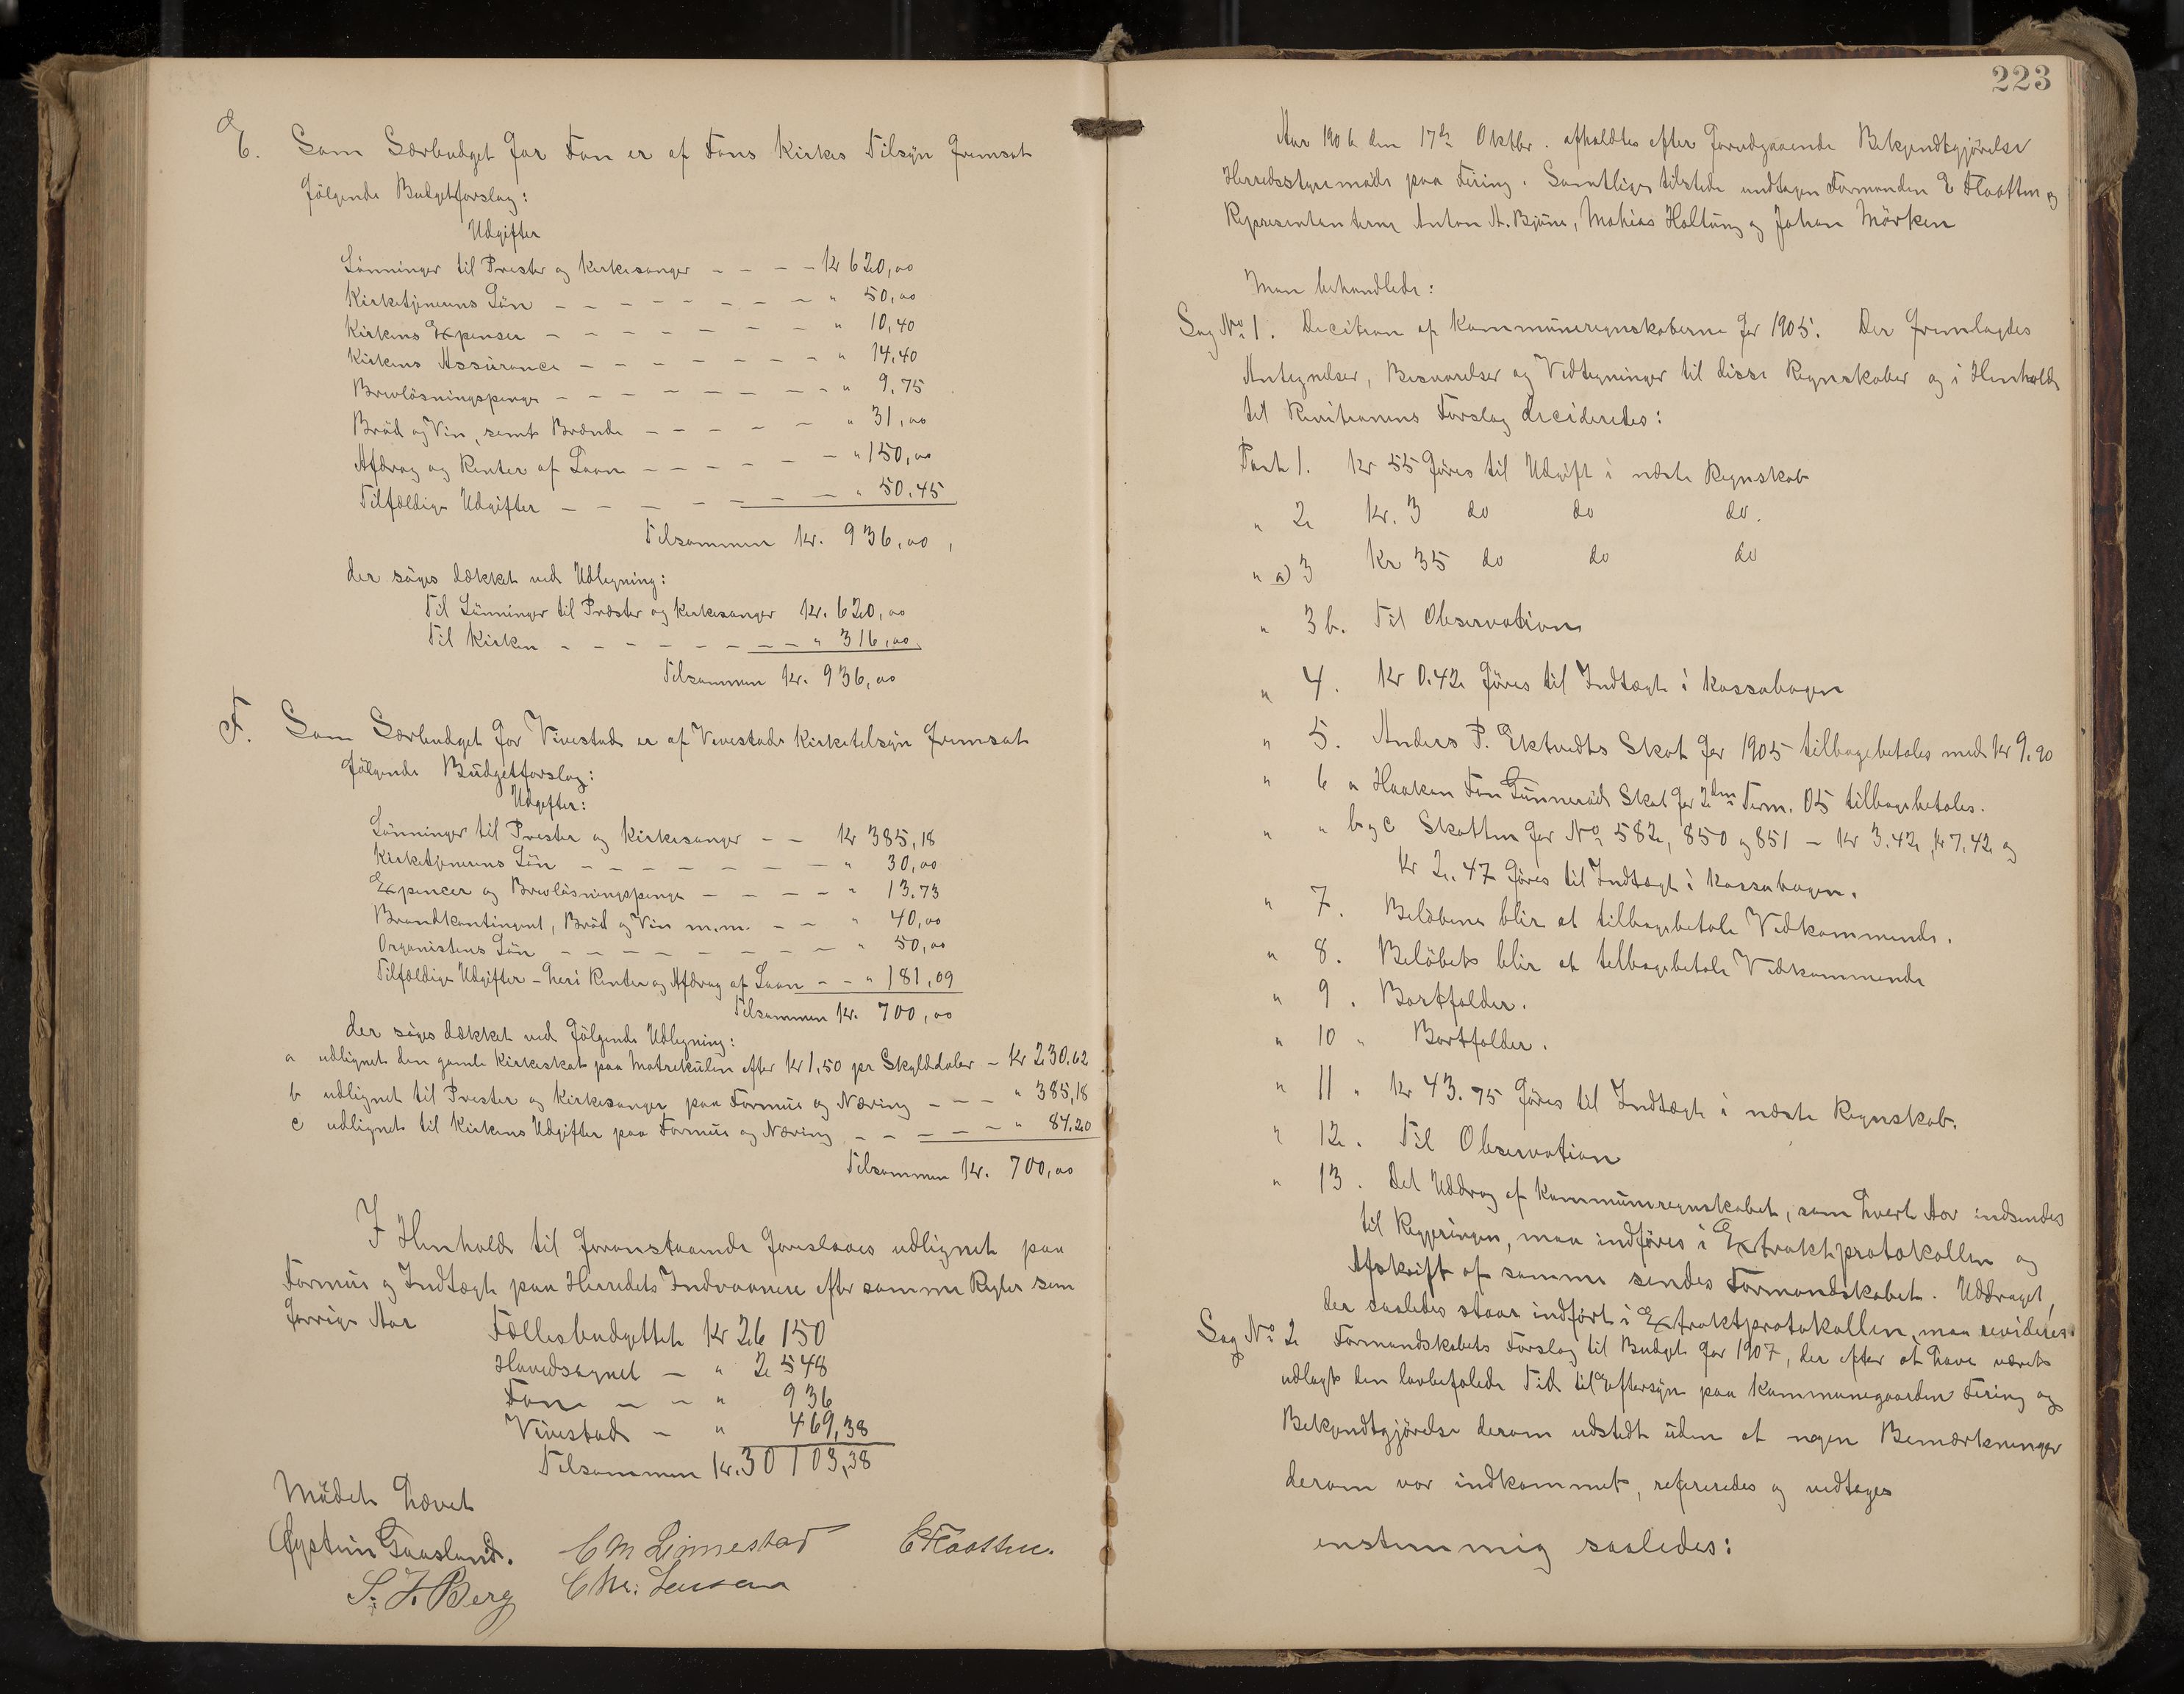 E. Som Særbudget for Fon er af Fons Kirkes Tilsyn fremsat
følgende Budgetforslag:
Udgifter
Lønninger til Prester og Kirkesanger - - - - Kr 620,00
Kirketjenerens Løn - - - - - - - - " 50,00
Kirkens Expenser - - - - - - - - " 10,40
Kirkens Assurance - - - - - - - " 14,40
Brevløsningspenge - - - - - - - - " 9,75
Brød og Vin, samt Brænde - - - - - " 31,00
Afdrag og Renter af Laan - - - - - - " 150,00
Tilfældige Udgifter - - - - - - - " 50,45
Tilsammen Kr. 936,00,
der søges dækket ved Udligning:
Til Lønninger til Præster og Kirkesanger Kr. 620,00
Til Kirken - - - - - - - - " 316,00
Tilsammen Kr. 936,00
F. Som Særbudget for Vivestad er af Vivestads Kirketilsyn fremsat
følgende Budgetforslag:
Udgifter:
Lønninger til Prester og Kirkesanger - - Kr 385,18
Kirketjenerens Løn - - - - - - - - " 30,00
Expencer og Brevløsningspenge - - - - " 13.73
Brandkontingent, Brød og Vin m.m. - - " 40,00
Organistens Løn - - - - - - - - " 50,00
Tilfældige Udgifter - heri Renter og Afdrag af Laan - - " 181,09
Tilsammen Kr. 700,00
der søges dækket ved følgende Udligning:
a udlignet den gamle Kirkeskat paa Matrekulen efter Kr 1,50 pr Skylddaler - Kr 230,62
b udlignet til Prester og Kirkesanger paa Formue og Næring - - - " 385,18
c udlignet til Kirkens Udgifter paa Formue og Næring - - - - - " 84,20
Tilsammen Kr. 700,00
I Henhold til foranstaaende foreslaaes udlignet paa
Formue og Indtægt paa Herredets Indvaanere efter samme Regler som
forrige Aar
Fællesbudgettet Kr 26 150
Hovedsognet - " 2 548
Fon - - " 936
Vivestad - " 469,38
Tilsammen Kr. 30 103,38
Mødet hævet
Øystein Gaasland. C M Linnestad E Flaatten.
S. J. Berg C Chr. Larsen
223
Aar 1906 den 17de Oktbr. afholdtes efter forudgaaende Bekjendtgjørelse
Herredsstyremøde paa Fering. Samtlige tilstede undtagen Formanden E Flaatten og
Repræsentanterne Anton A. Bjune, Mathias Holtung og Johan Mørken
Man behandlede:
Sag No 1. Decition af Kommuneregnskaberne for 1905. Der fremlagdes
Antegnelser, Besvarelser og Vedtegninger til disse Regnskaber og i Henhold
til Revitionens Forslag decideredes:
Post 1. Kr 55 føres til Udgift i næste Regnskab
" 2 Kr. 3 do do do.
" a) 3 Kr 35 do do do
" 3 b. Til Observation
" 4. Kr 0.42 føres til Indtægt i Kassabogen
" 5. Anders P. Ektvedts Skat for 1905 tilbagebetales med Kr 9,90
" 6 a Haaken Fon Gunnerøds Skat for 2den Term. 05 tilbagebetales.
" " b og c Skatten for No 582, 850 og 851 - Kr 3.42, Kr 7.42 og
Kr 2.47 føres til Indtægt i Kassabogen.
" 7. Beløbene blir at tilbagebetale Vedkommende.
" 8. Beløbet blir at tilbagebetale Vedkommende
" 9. Bortfalder.
" 10 " Bortfalder.
" 11 " Kr 43.75 føres til Indtægt i næste Regnskab.
" 12. Til Observation
" 13. Det Uddrag af Kommuneregnskabet, som hvert Aar indsendes
til Regjeringen, maa indføres i Extraktprotokollen og
Afskrift af samme sendes Formandskabet. Uddraget,
der saaledes staar indført i Extraktprotokollen, maa revideres.
Sag No 2 Formandskabets Forslag til Budget for 1907, der efter at have været
udlagt den lovbefalede Tid til Eftersyn paa Kommunegaarden Fering og
Bekjendtgjørelse derom udstedt uden at nogen Bemærkninger
derom var indkommet, refereredes og vedtages
enstemmig saaledes: